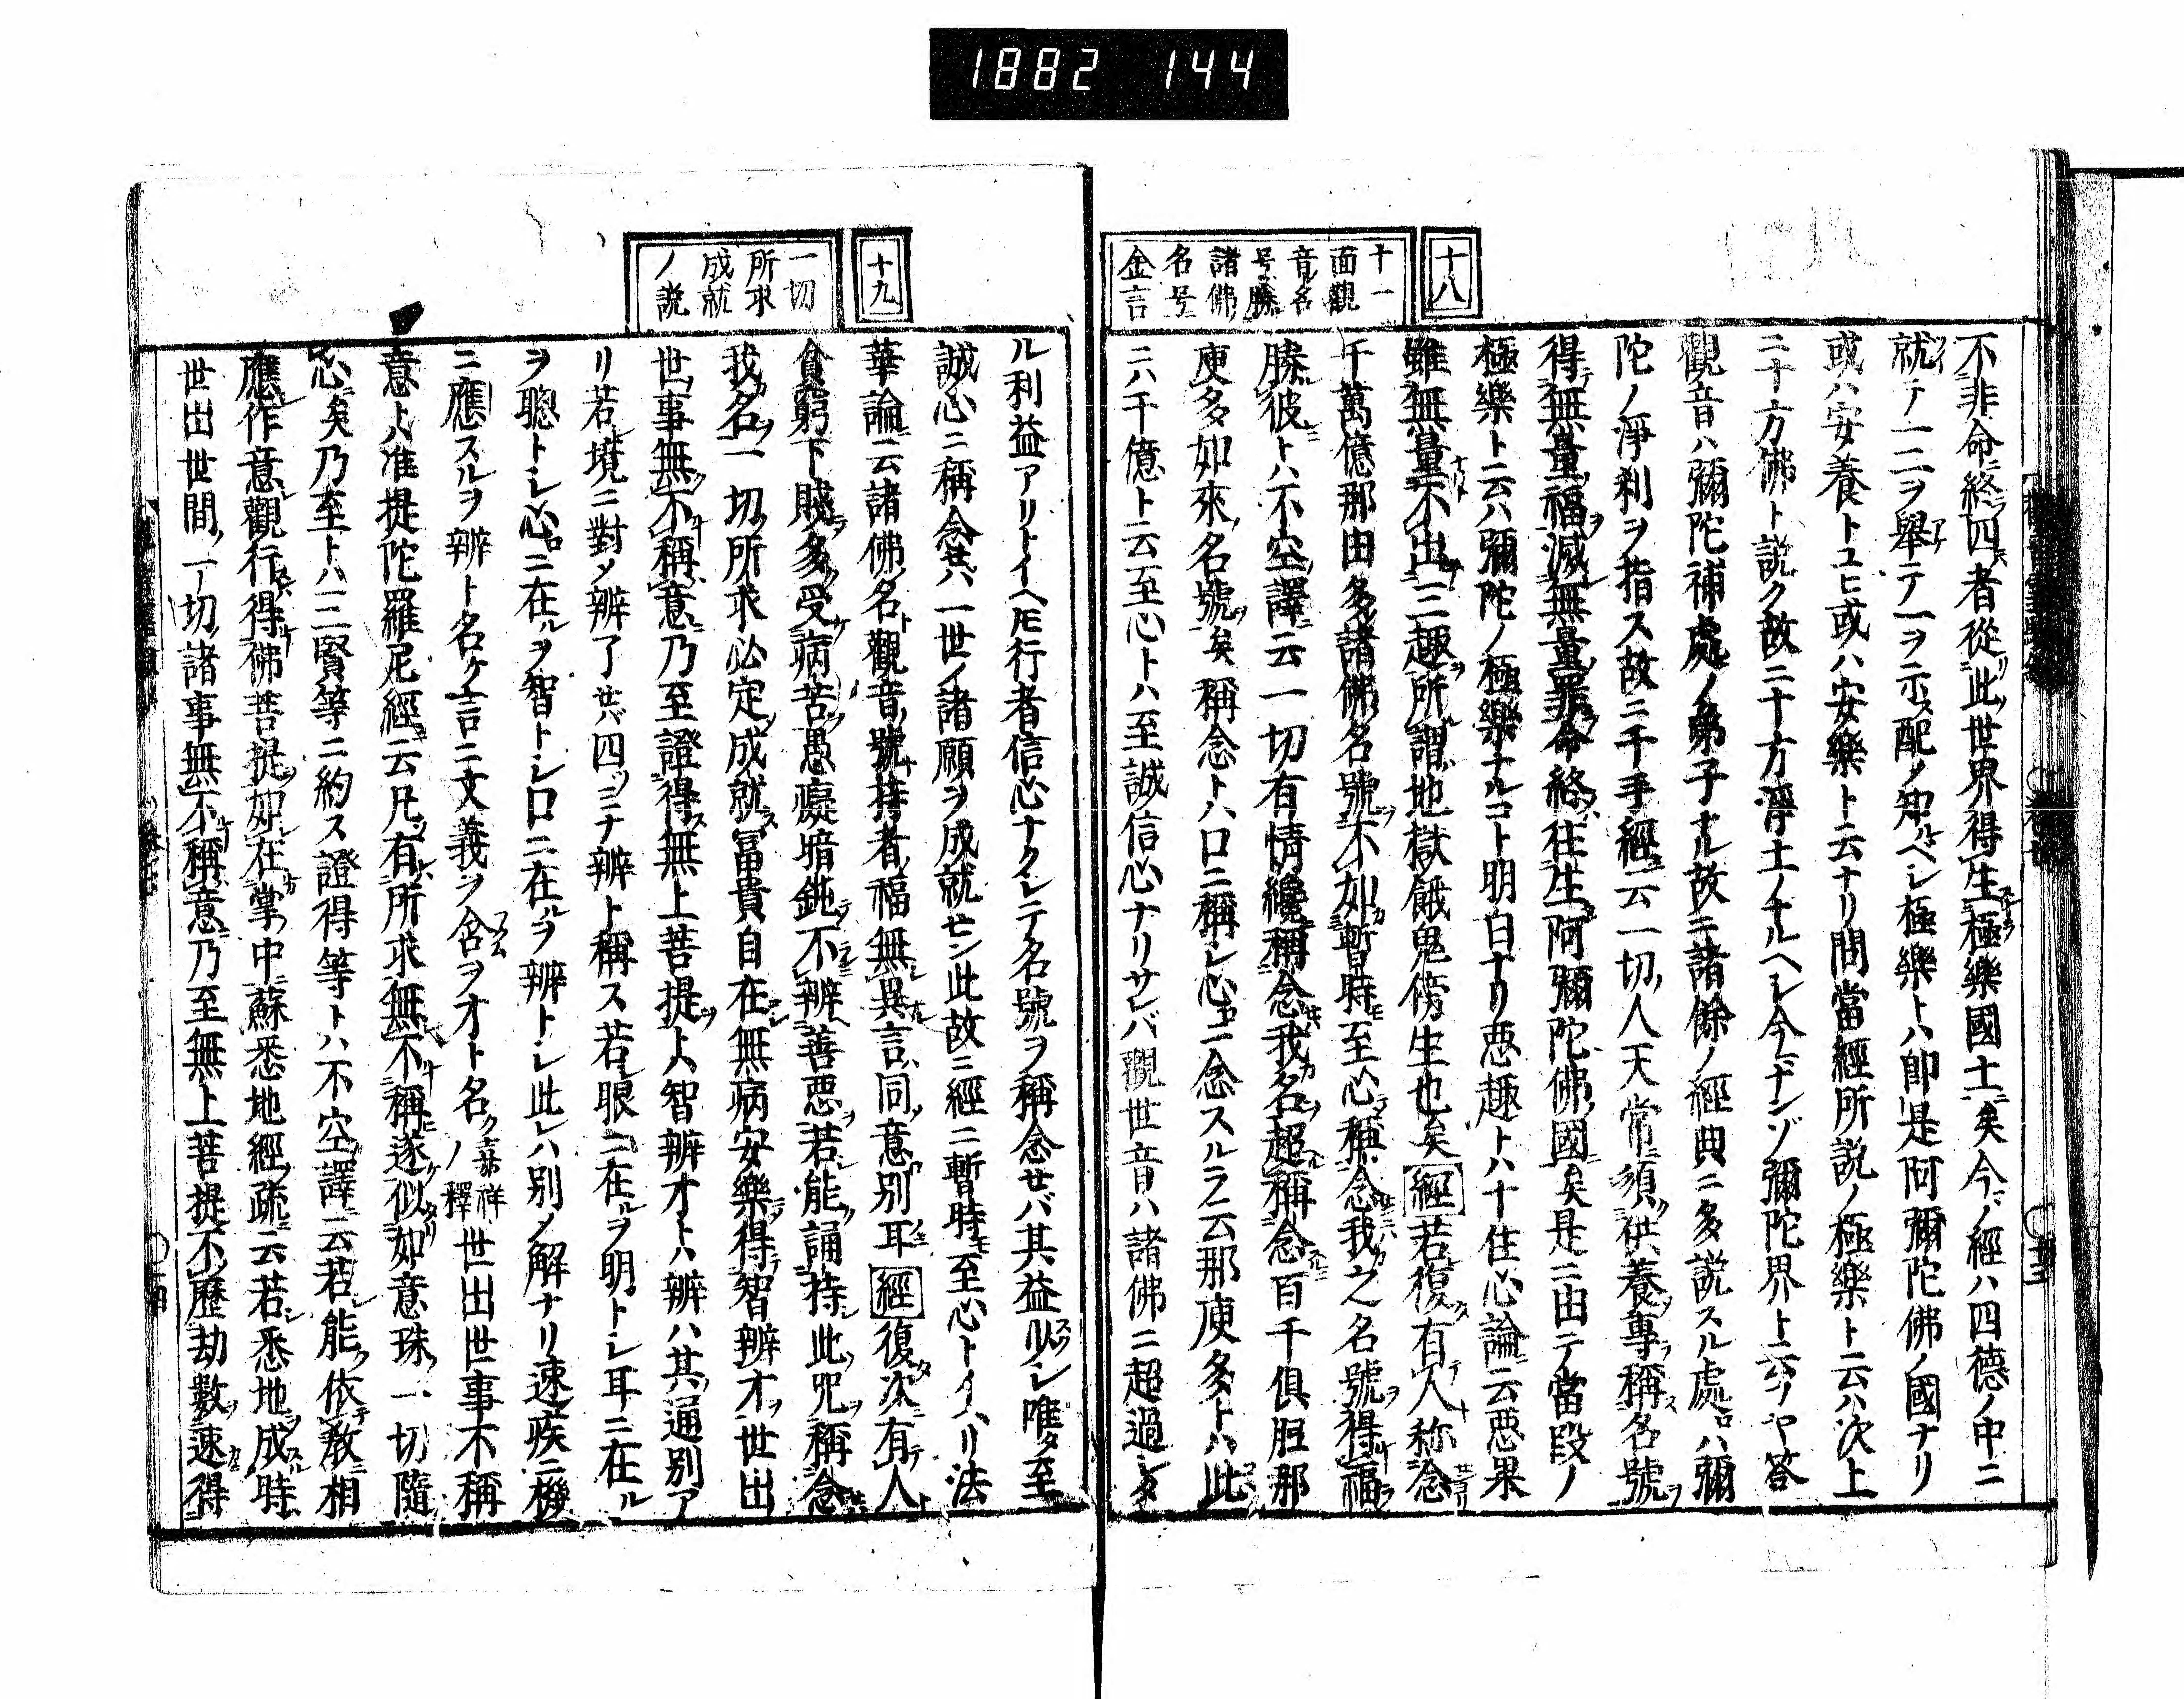 1882 144
十八
十一
面觀
音名
号勝
諸佛
名号
金言
不非命終四者從此世界得生極樂國土矣今ノ經ハ四德ノ中ニ
就テ一二ヲ舉テ一ヲ示ス配ノ知ヘシ極樂トハ即是阿彌陀佛ノ國ナリ
或ハ安養トユヒ或ハ安樂ト云ナリ問當經所説ノ極樂ト云ハ次上
ニ十方佛ト説ク故ニ十方淨土ノナルヘレ今ナンゾ彌陀界ト云ノヤ答
觀音ハ彌陀補處ノ弟子ナル故ニ諸餘ノ經典ニ多説スル處ハ彌
陀ノ淨刹ヲ指ス故ニ千手經云一切人天常須供養專稱名號
得無量福滅無量罪命終往生阿彌陀佛國矣是ニ由テ當段ノ
極樂ト云ハ彌陀ノ極樂ナルコト明白ナリ惡趣トハ十住心論云惡果
雖無量不出三趣所謂地獄餓鬼傍生也矣經若復有人称念
千萬億那由多諸佛名號不如暫時至心稱念我之名號得福
勝彼トハ不空譯云一切有情纔稱念我名超稱念百千俱胝那
庾多如來名號矣稱念トハ口ニ稱シ心ニ念スルヲ云那庾多トハ此
ニハ千億ト云至心トハ至誠信心ナリサレバ觀世音ハ諸佛ニ超過シタ
十九
一切
所求
成就
ノ説
ル利益アリトイヘ𪜈行者信心ナクシテ名號ヲ稱念セバ其益少シ唯タ至
誠心ニ稱念セハ一世ノ諸願ヲ成就セン此故ニ經ニ暫時至心トイヘリ法
華論云諸佛名觀音號持者福無異言同意別耳經復次有人
貪窮下賤多受病苦愚癡暗鈍不辨善惡若能誦持此咒稱念
我名一切所求必定成就冨貴自在無病安樂得智辨才世出
世事無不稱意乃至證得無上菩提トハ智辨才トハ辨ハ其通別ア
リ若境ニ對〆辨了セハ四ツミナ辨ト稱ス若眼ニ在ルヲ明トレ耳ニ在ル
ヲ聰トレ心ニ在ルヲ智トシ口ニ在ルヲ辨トレ此レハ別〆解ナリ速疾ニ機
ニ應スルヲ辨ト名ケ言ニ文義ヲ含ヲオト名ク嘉祥ノ釋世出世事不稱
意トハ准提陀羅尼經云凡有所求無不稱遂似如意珠一切隨
心矣乃至トハ三賢等ニ約ス證得等トハ不空譯云若能依教相
應作意觀行得佛菩提如在掌中蘇悉地經疏云若悉地成時
世出世間一切諸事無不稱意乃至無上菩提不歷劫數速得